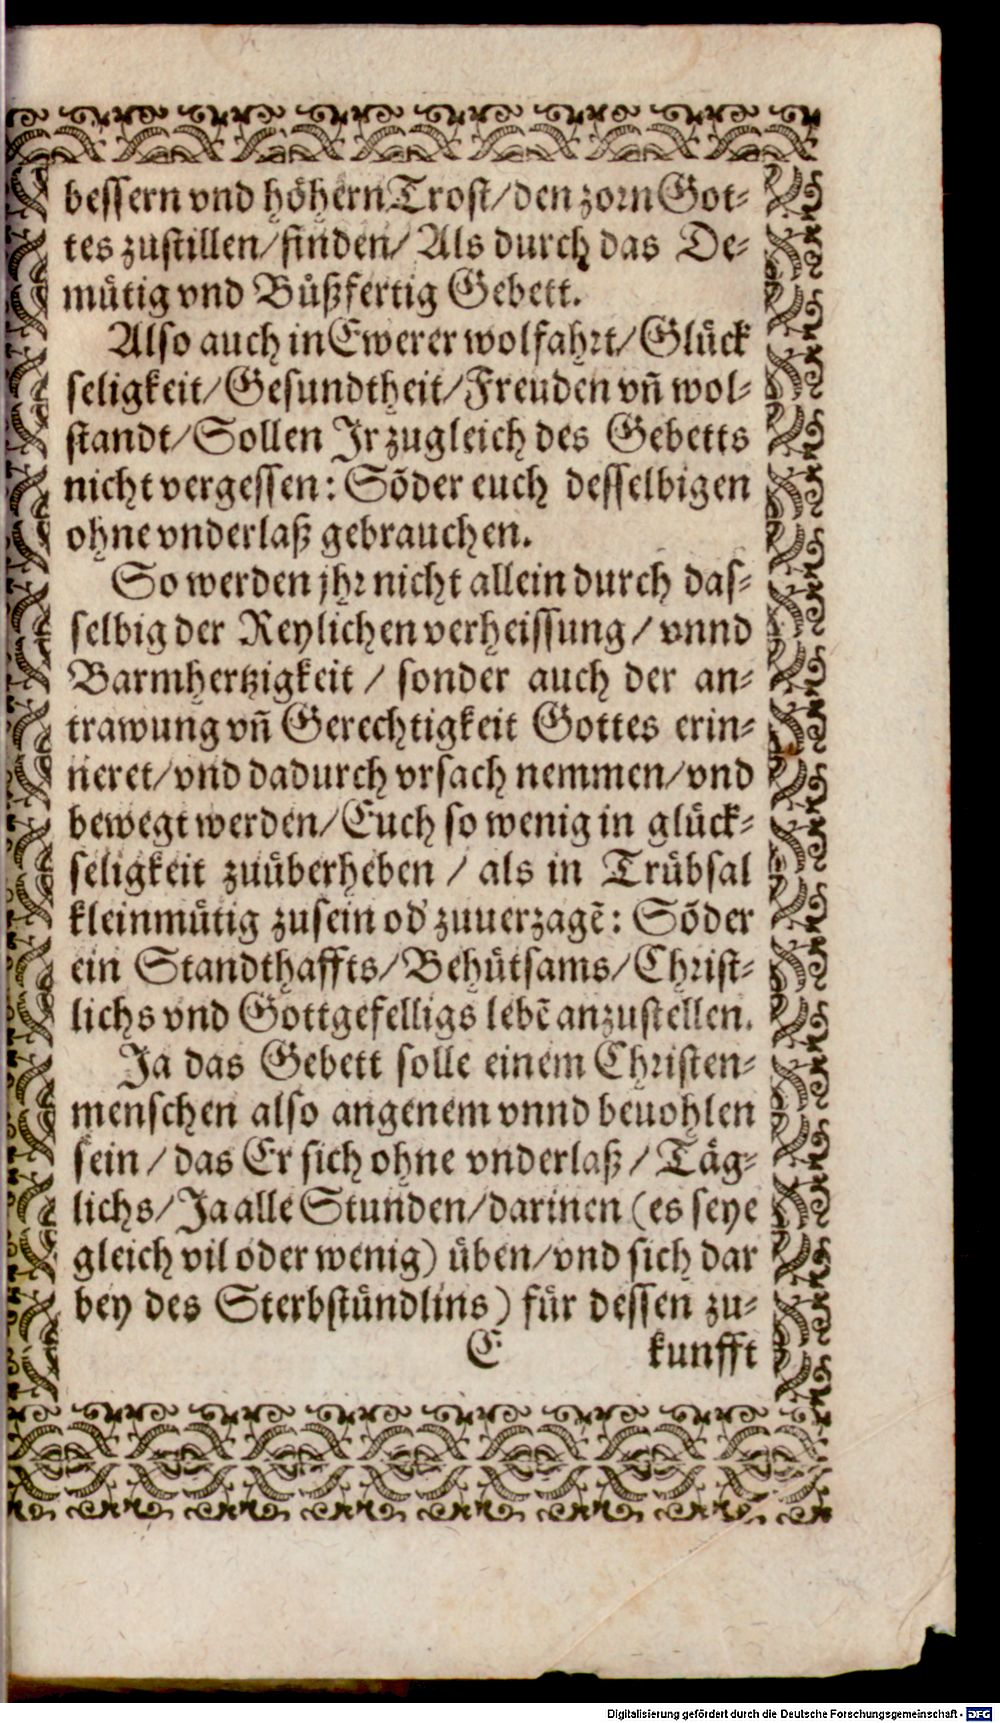 bessern vnd höhern Trost/den zorn Got-
tes zustillen/finden/Als durch das De-
mütig vnd Büßfertig Gebett.
Also auch in Ewerer wolfahrt/Glück
seligkeit/Gesundtheit/Freuden vñ wol-
standt/Sollen Ir zugleich des Gebetts
nicht vergessen: Sõder euch desselbigen
ohne vnderlaß gebrauchen.
So werden jhr nicht allein durch das-
selbig der Reylichen verheissung/vnnd
Barmhertzigkeit/sonder auch der an-
trawung vñ Gerechtigkeit Gottes erin-
neret/vnd dadurch vrsach nemmen/vnd
bewegt werden/Euch so wenig in glück-
seligkeit zuüberheben/als in Trübsal
kleinmütig zusein od' zuuerzagẽ: Sõder
ein Standthaffts/Behütsams/Christ-
lichs vnd Gottgefelligs lebẽ anzustellen.
Ja das Gebett solle einem Christen-
menschen also angenem vnnd beuohlen
sein/das Er sich ohne vnderlaß/Täg-
lichs/Ja alle Stunden/darinen (es seye
gleich vil oder wenig) üben/vnd sich dar
bey des Sterbstündlins) für dessen zu-
C kunfft
Digitalisierung gefördert durch die Deutsche Forschungsgemeinschaft - DFG